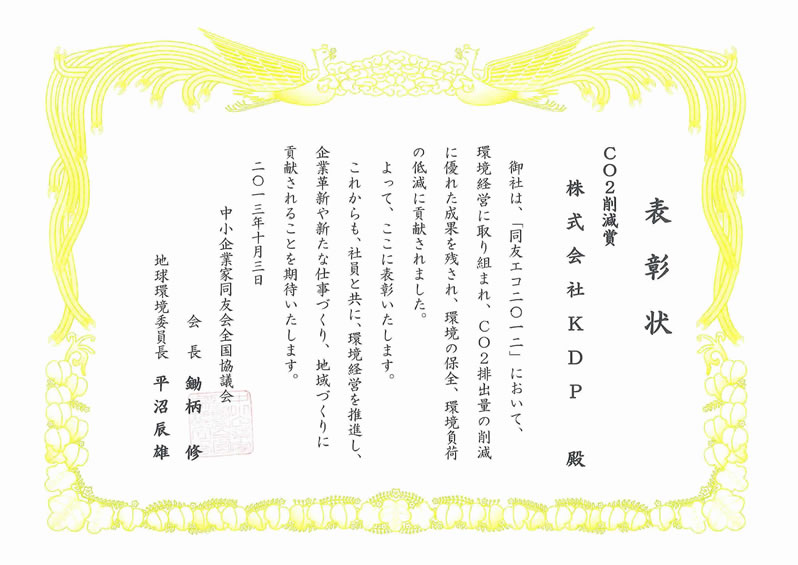 表彰状
CO2削減賞
株式会社KDP 殿
御社は、「同友エコ二〇一二」において、
環境経営に取り組まれ、CO2排出量の削減
に優れた成果を残され、環境の保全、環境負荷
の低減に貢献されました。
よって、ここに表彰いたします。
これからも、社員と共に、環境経営を推進し、
企業革新や新たな仕事づくり、地域づくりに
貢献されることを期待いたします。
二〇一三年十月三日
中小企業家同友会全国協議会
会長 鋤柄 修
地球環境委員長 平沼辰雄